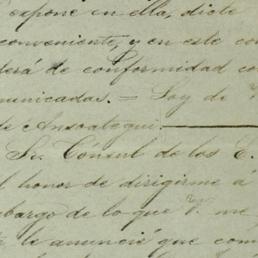 expone en ella, dicte
conveniente, y en este co
derá de conformidad co
municadas. = Soy de V.
de Ansoategui.
Sr. Cónsul de los E.
l honor de dirigirme á
bargo de lo que V. me
le anuncié que com